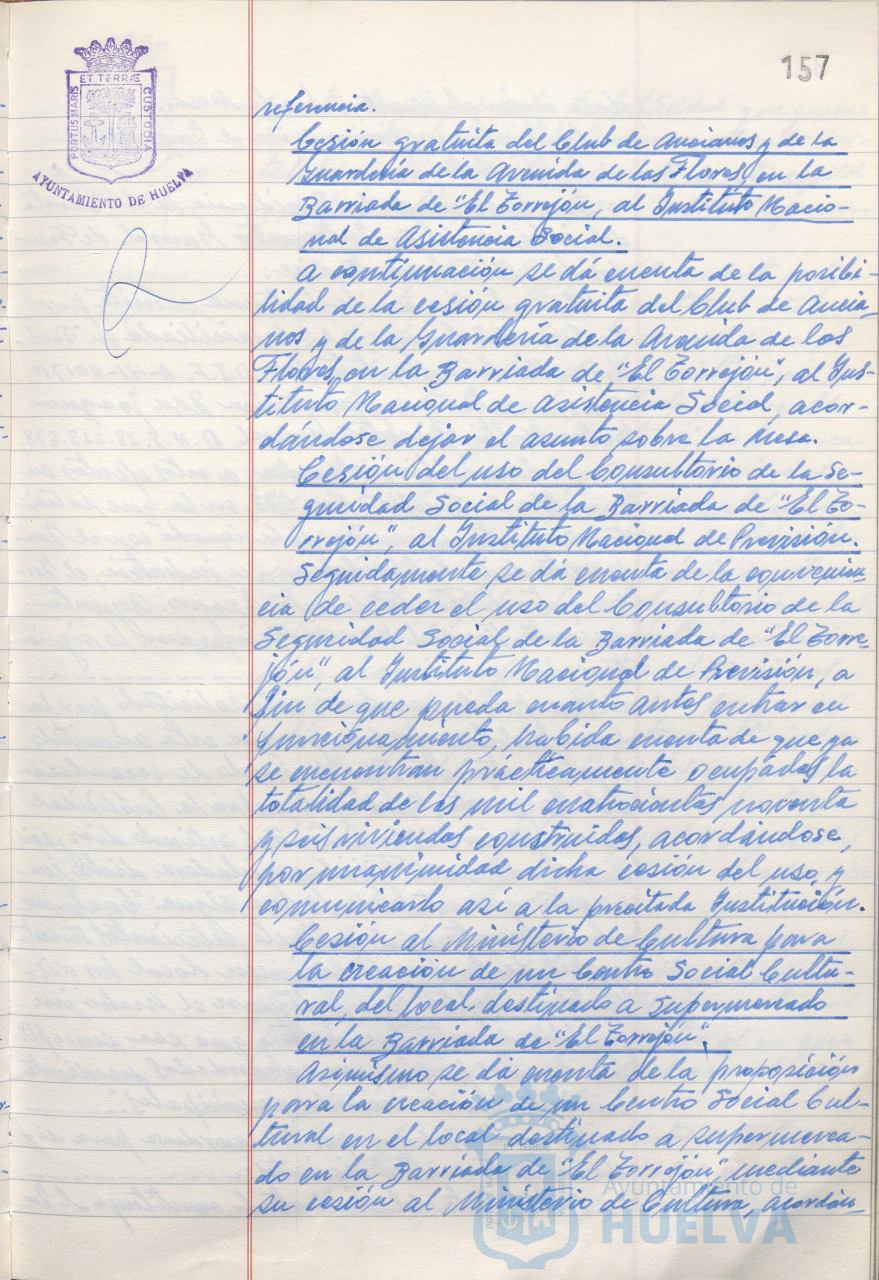 157
PORTUS MARIS ET TERRÆ CUSTODIA
AYUNTAMIENTO DE HUELVA
referencia.
Cesión gratuita del Club de Ancianos y de la
Guardería de la Avenida de las Flores, en la
Barriada de "El Torrejón, al Instituto Nacio-
nal de Asistencia Social.
A continuación se dá cuenta de la posibi-
lidad de la cesión gratuita del Club de Ancia-
nos y de la Guardería de la Avenida de las
Flores, en la Barriada de "El Torrejón", al Ins-
tituto Nacional de Asistencia Social, acor-
dándose dejar el asunto sobre la Mesa.
Cesión del uso del Consultorio de la Se-
guridad Social de la Barriada de "El To-
rrejón", al Instituto Nacional de Previsión.
Seguidamente, se dá cuenta de la convenien-
cia de ceder el uso del Consultorio de la
Seguridad Social de la Barriada de "El Torre-
jón", al Instituto Nacional de Previsión, a
fin de que pueda cuanto antes entrar en
funcionamiento, habida cuenta de que ya
se encuentran prácticamente ocupadas la
totalidad de las mil cuatrocientas noventa
y seis viviendas construidas, acordándose,
por unanimidad dicha cesión del uso, y
comunicarlo así a la precitada Institución.
Cesión al Ministerio de Cultura para
la creación de un Centro Social Cultu-
ral, del local destinado a Supermercado
en la Barriada de "El Torrejón".
Asimismo se dá cuenta de la proposición
para la creación de un Centro Social Cul-
tural en el local destinado a supermerca-
do en la Barriada de "El Torrejón", mediante
su cesión al Ministerio de Cultura, acordán-
Ayuntamiento de
HUELVA